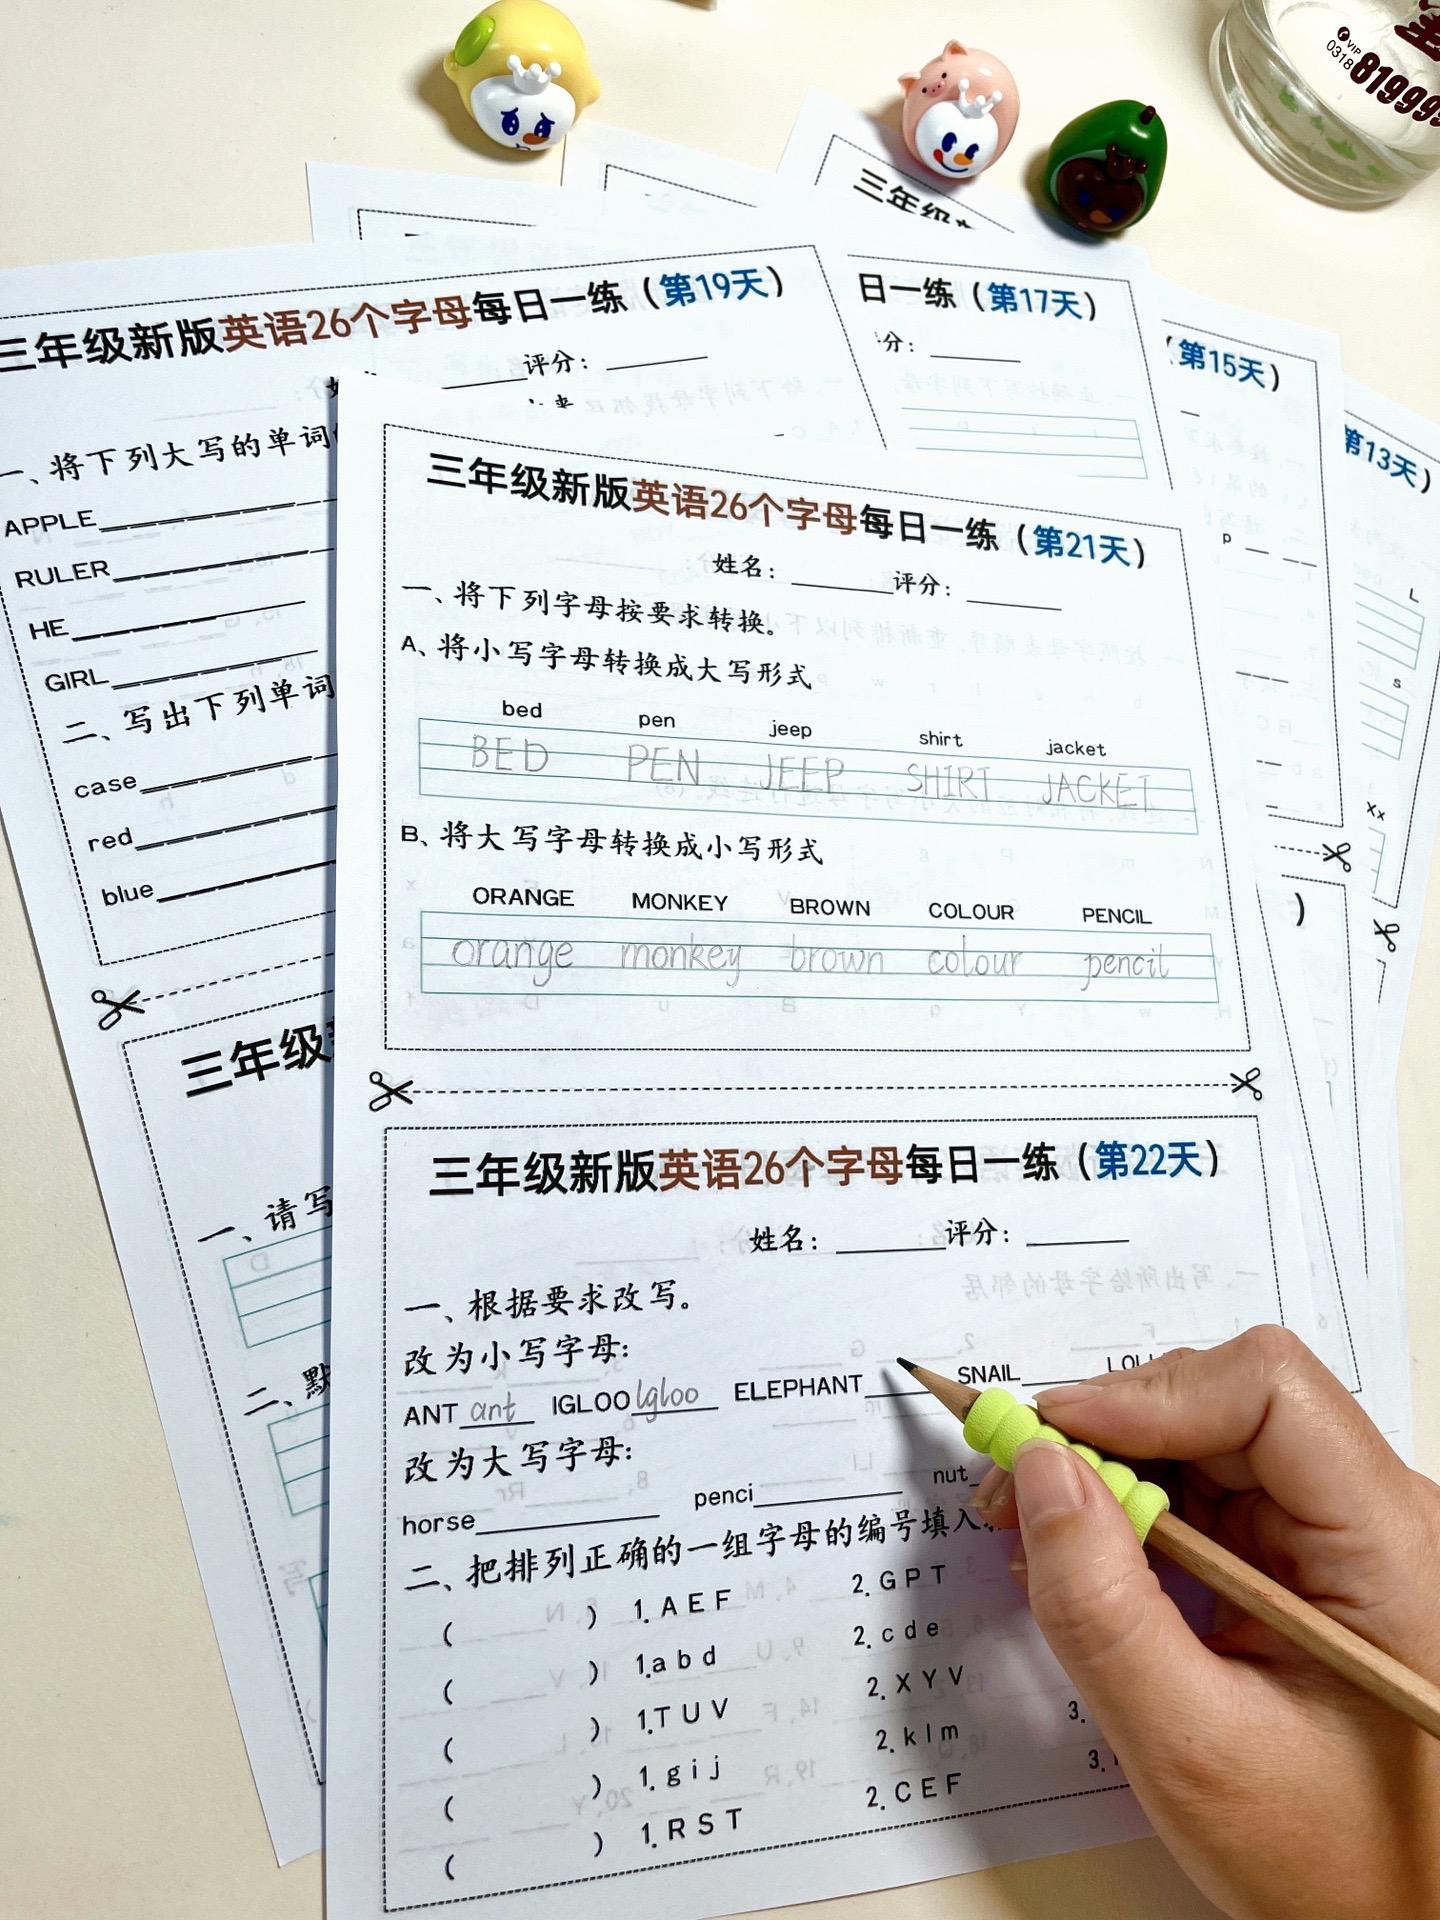 VIP
0318
819999
三年级新
三年级新版英语26个字母每日一练（第19天）
评分：
一、将下列大写的单词
APPLE
RULER
HE
GIRL
二、写出下列单词
case
red
blue
三年级
一、请写
二、默
日一练（第17天）
分：
（第15天）
p
第13天）
L
s
Xx
）
三年级新版英语26个字母每日一练（第21天）
姓名： 评分：
一、将下列字母按要求转换。
A、将小写字母转换成大写形式
bed pen jeep shirt jacket
BED PEN JEEP SHIRT JACKET
B、将大写字母转换成小写形式
ORANGE MONKEY BROWN COLOUR PENCIL
orange monkey brown colour pencil
三年级新版英语26个字母每日一练（第22天）
姓名： 评分：
一、根据要求改写。
改为小写字母：
ANT ant IGLOO Igloo ELEPHANT SNAIL
改为大写字母：
horse penci nut
二、把排列正确的一组字母的编号填入
( ) 1. A E F 2. G P T
( ) 1. a b d 2. c d e
( ) 1. T U V 2. X Y V 3.
( ) 1. g i j 2. k l m 3.
( ) 1. R S T 2. C E F